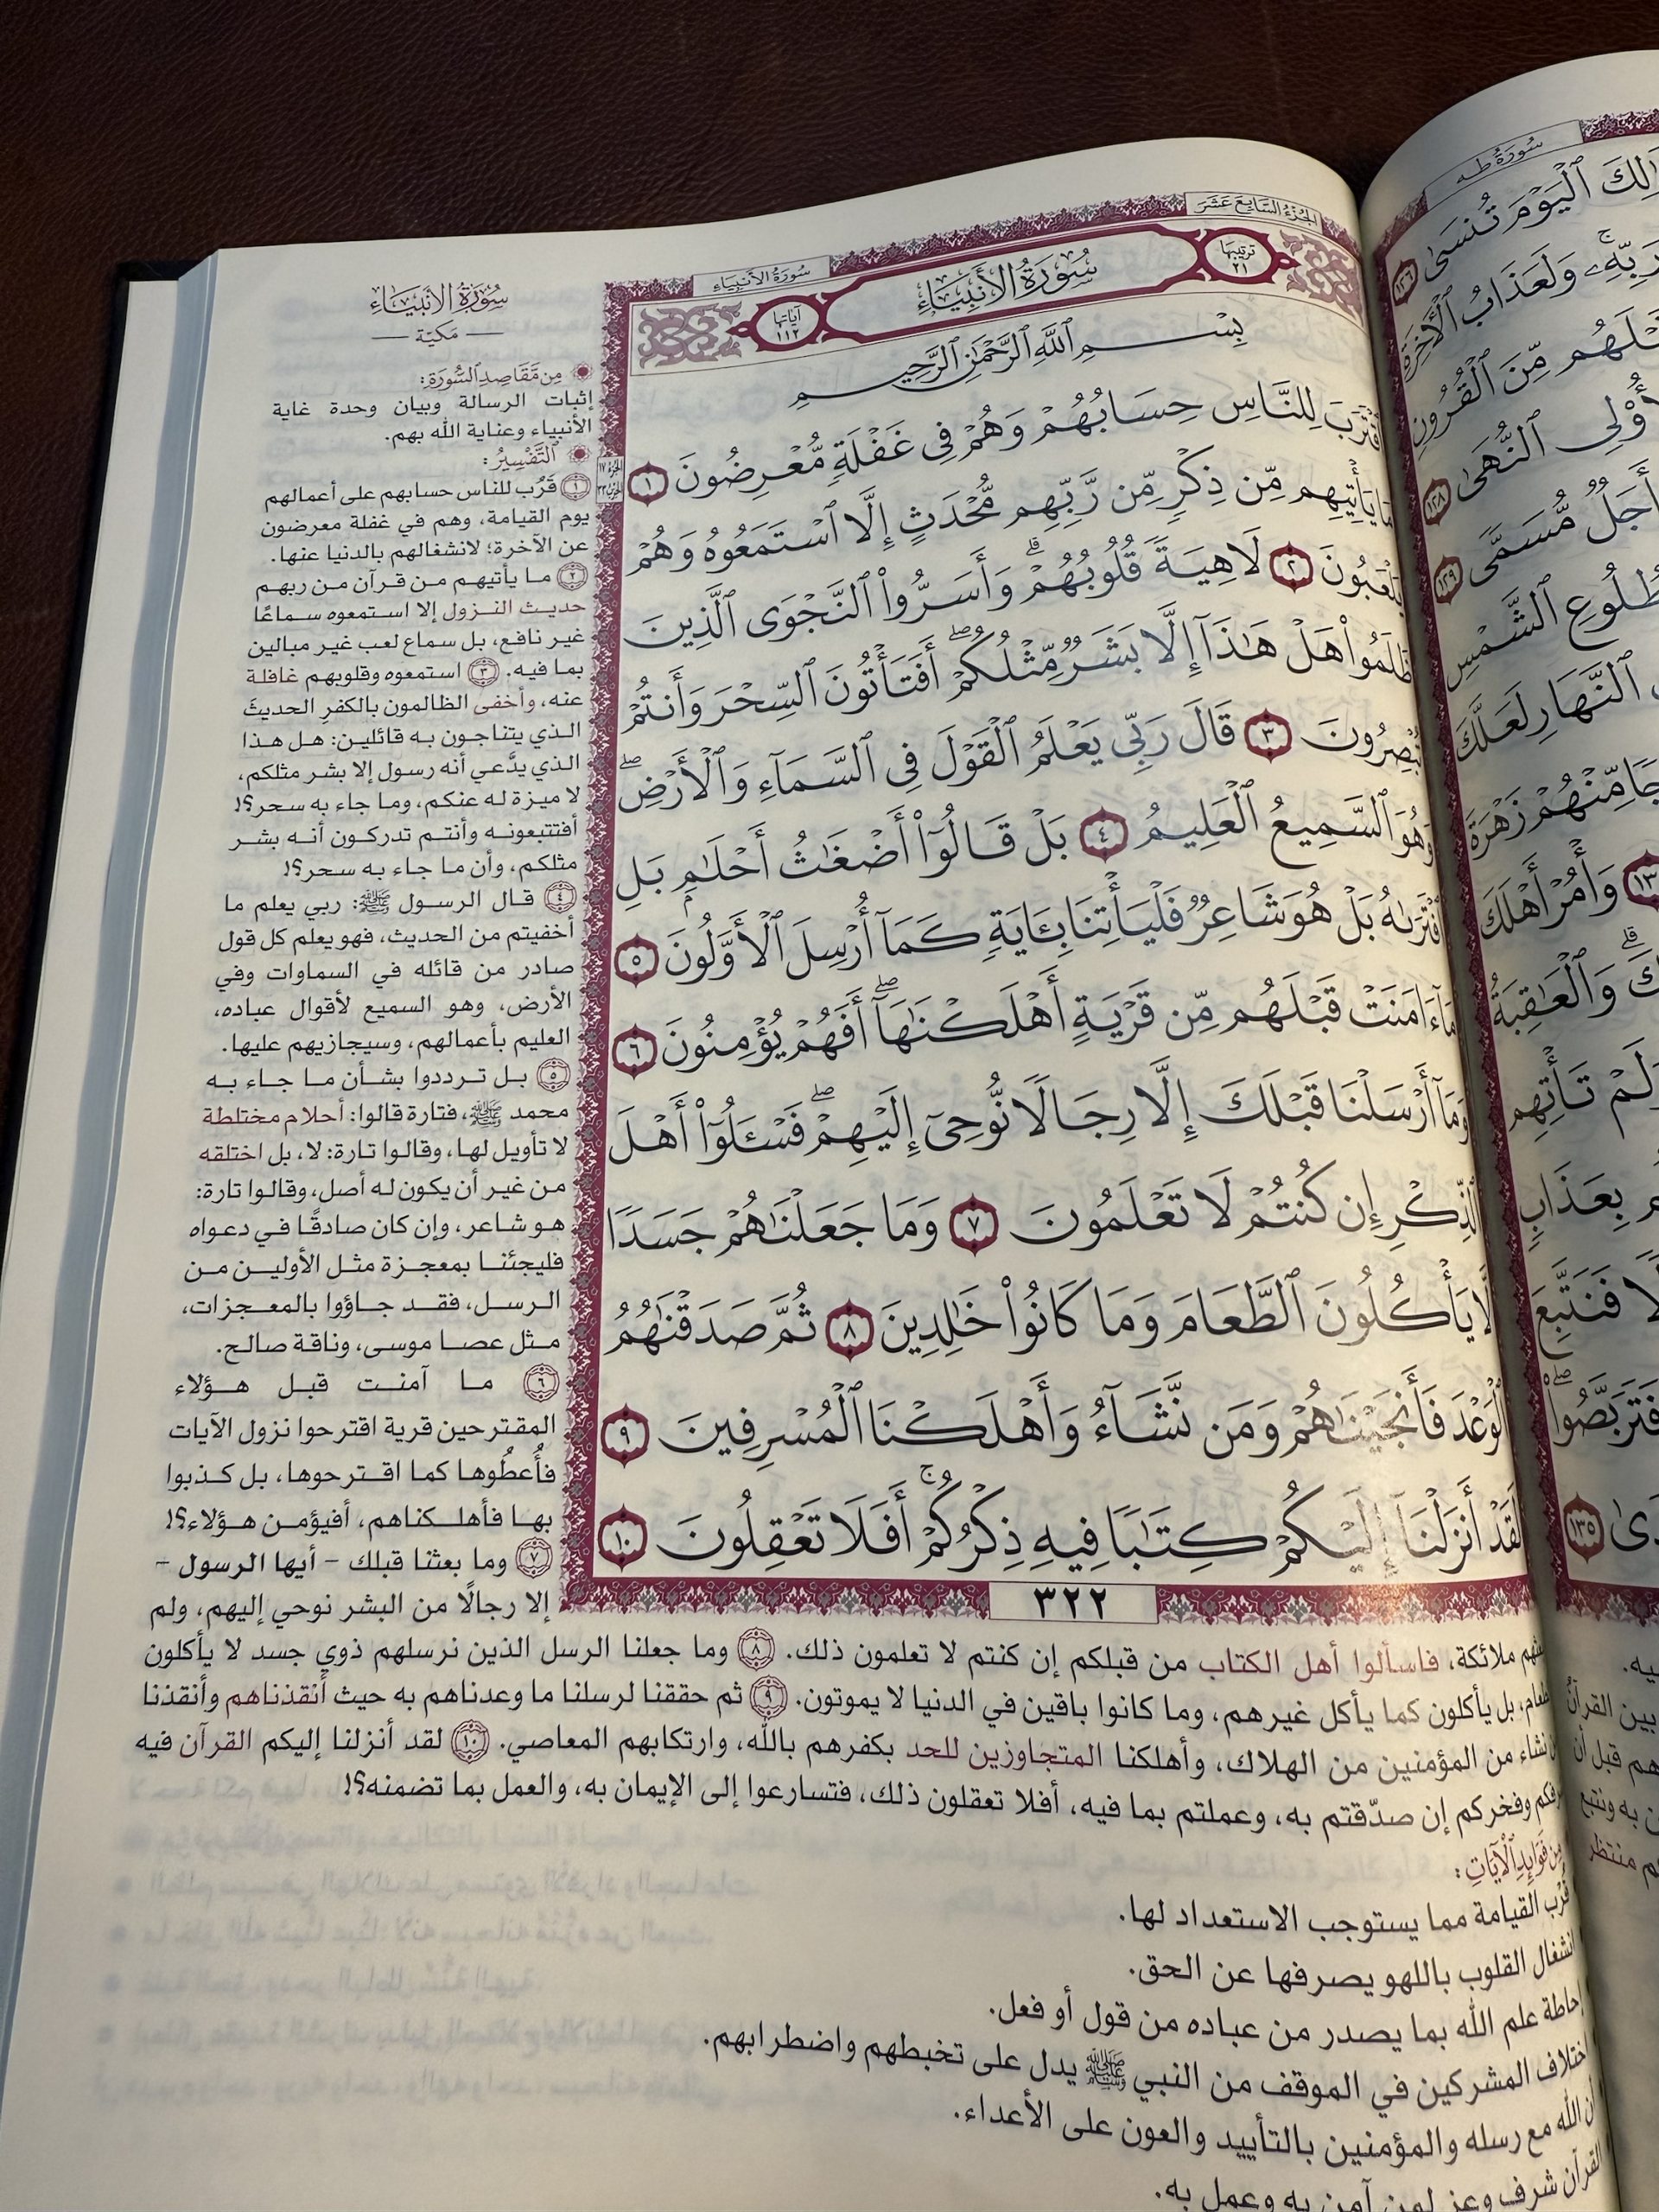 الجزء السابع عشر
سورة الأنبياء
ترتيبها ٢١
سُورَةُ الأَنبِيَاءِ
آياتها ١١٢
بِسْمِ ٱللَّهِ ٱلرَّحْمَٰنِ ٱلرَّحِيمِ
ٱقْتَرَبَ لِلنَّاسِ حِسَابُهُمْ وَهُمْ فِى غَفْلَةٍ مُّعْرِضُونَ ١
مَا يَأْتِيهِم مِّن ذِكْرٍ مِّن رَّبِّهِم مُّحْدَثٍ إِلَّا ٱسْتَمَعُوهُ وَهُمْ
يَلْعَبُونَ ٢ لَاهِيَةً قُلُوبُهُمْ ۗ وَأَسَرُّوا۟ ٱلنَّجْوَى ٱلَّذِينَ
ظَلَمُوا۟ هَلْ هَٰذَآ إِلَّا بَشَرٌ مِّثْلُكُمْ ۖ أَفَتَأْتُونَ ٱلسِّحْرَ وَأَنتُمْ
تُبْصِرُونَ ٣ قَالَ رَبِّى يَعْلَمُ ٱلْقَوْلَ فِى ٱلسَّمَآءِ وَٱلْأَرْضِ ۖ
وَهُوَ ٱلسَّمِيعُ ٱلْعَلِيمُ ٤ بَلْ قَالُوٓا۟ أَضْغَٰثُ أَحْلَٰمٍۭ بَلِ
ٱفْتَرَىٰهُ بَلْ هُوَ شَاعِرٌ فَلْيَأْتِنَا بِـَٔايَةٍ كَمَآ أُرْسِلَ ٱلْأَوَّلُونَ ٥
مَآ ءَامَنَتْ قَبْلَهُم مِّن قَرْيَةٍ أَهْلَكْنَٰهَآ ۖ أَفَهُمْ يُؤْمِنُونَ ٦
وَمَآ أَرْسَلْنَا قَبْلَكَ إِلَّا رِجَالًا نُّوحِىٓ إِلَيْهِمْ ۖ فَسْـَٔلُوٓا۟ أَهْلَ
ٱلذِّكْرِ إِن كُنتُمْ لَا تَعْلَمُونَ ٧ وَمَا جَعَلْنَٰهُمْ جَسَدًا
لَّا يَأْكُلُونَ ٱلطَّعَامَ وَمَا كَانُوا۟ خَٰلِدِينَ ٨ ثُمَّ صَدَقْنَٰهُمُ
ٱلْوَعْدَ فَأَنجَيْنَٰهُمْ وَمَن نَّشَآءُ وَأَهْلَكْنَا ٱلْمُسْرِفِينَ ٩
لَقَدْ أَنزَلْنَآ إِلَيْكُمْ كِتَٰبًا فِيهِ ذِكْرُكُمْ ۖ أَفَلَا تَعْقِلُونَ ١٠
٣٢٢
سُورَةُ الأَنبِيَاءِ
مَكيّة
مِن مَّقَاصِدِ السُّورَةِ:
إثبات الرسالة وبيان وحدة غاية
الأنبياء وعناية الله بهم.
التَّفْسِيرُ:
١ قَرُب للناس حسابهم على أعمالهم
يوم القيامة، وهم في غفلة معرضون
عن الآخرة؛ لانشغالهم بالدنيا عنها.
٢ ما يأتيهم من قرآن من ربهم
حديث النزول إلا استمعوه سماعًا
غير نافع، بل سماع لعب غير مبالين
بما فيه. ٣ استمعوه وقلوبهم غافلة
عنه، وأخفى الظالمون بالكفرِ الحديثَ
الذي يتناجون به قائلين: هل هذا
الذي يدَّعي أنه رسول إلا بشر مثلكم،
لا ميزة له عنكم، وما جاء به سحر؟!
أفتتبعونه وأنتم تدركون أنه بشر
مثلكم، وأن ما جاء به سحر؟!
٤ قال الرسول ﷺ: ربي يعلم ما
أخفيتم من الحديث، فهو يعلم كل قول
صادر من قائله في السماوات وفي
الأرض، وهو السميع لأقوال عباده،
العليم بأعمالهم، وسيجازيهم عليها.
٥ بل ترددوا بشأن ما جاء به
محمد ﷺ، فتارة قالوا: أحلام مختلطة
لا تأويل لها، وقالوا تارة: لا، بل اختلقه
من غير أن يكون له أصل، وقالوا تارة:
هو شاعر، وإن كان صادقًا في دعواه
فليجئنا بمعجزة مثل الأولين من
الرسل، فقد جاؤوا بالمعجزات،
مثل عصا موسى، وناقة صالح.
٦ ما آمنت قبل هؤلاء
المقترحين قرية اقترحوا نزول الآيات
فأُعطُوها كما اقترحوها، بل كذبوا
بها فأهلكناهم، أفيؤمن هؤلاء؟!
٧ وما بعثنا قبلك – أيها الرسول –
إلا رجالًا من البشر نوحي إليهم، ولم
ملائكة، فاسألوا أهل الكتاب من قبلكم إن كنتم لا تعلمون ذلك. ٨ وما جعلنا الرسل الذين نرسلهم ذوي جسد لا يأكلون
بل يأكلون كما يأكل غيرهم، وما كانوا باقين في الدنيا لا يموتون. ٩ ثم حققنا لرسلنا ما وعدناهم به حيث أنقذناهم وأنقذنا
نشاء من المؤمنين من الهلاك، وأهلكنا المتجاوزين للحد بكفرهم بالله، وارتكابهم المعاصي. ١٠ لقد أنزلنا إليكم القرآن فيه
وفخركم إن صدّقتم به، وعملتم بما فيه، أفلا تعقلون ذلك، فتسارعوا إلى الإيمان به، والعمل بما تضمنه؟!
مِن فَوَائِدِ الآيَاتِ:
قُرْب القيامة مما يستوجب الاستعداد لها.
انشغال القلوب باللهو يصرفها عن الحق.
إحاطة علم الله بما يصدر من عباده من قول أو فعل.
اختلاف المشركين في الموقف من النبي ﷺ يدل على تخبطهم واضطرابهم.
أن الله مع رسله والمؤمنين بالتأييد والعون على الأعداء.
القرآن شرف وعز لمن آمن به وعمل به.
سُورَةُ طه
ٱلْيَوْمَ تُنسَىٰ ١٢٦
رَبِّهِۦ ۚ وَلَعَذَابُ ٱلْأَخِرَةِ
مِّنَ ٱلْقُرُونِ
لِّأُو۟لِى ٱلنُّهَىٰ ١٢٨
وَأَجَلٌ مُّسَمًّى ١٢٩
طُلُوعِ ٱلشَّمْسِ
ٱلنَّهَارِ لَعَلَّكَ
مِّنْهُمْ زَهْرَةَ
وَأْمُرْ أَهْلَكَ
وَٱلْعَٰقِبَةُ
تَأْتِهِم
بِعَذَابٍ
فَنَتَّبِعَ
فَتَرَبَّصُوا۟ ۖ
١٣٥